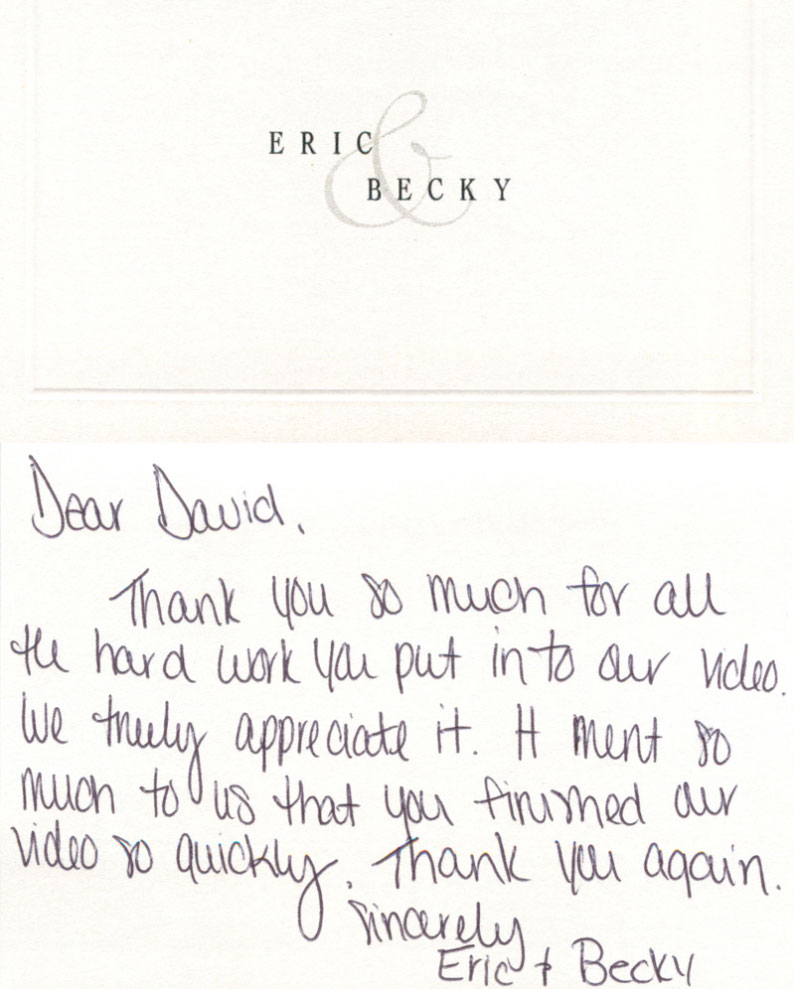 ERIC
&
BECKY
Dear David,
Thank you so much for all
the hard work you put into our video.
We truly appreciate it. It ment so
much to us that you finished our
video so quickly. Thank you again.
Sincerely
Eric + Becky